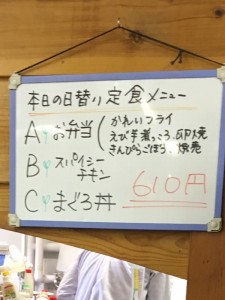 本日の日替り定食メニュー
A お弁当(かれいフライ
えび芋煮っころ、卵焼
きんぴらごぼう、焼売
B スパイシー
チキン
610円
C まぐろ丼